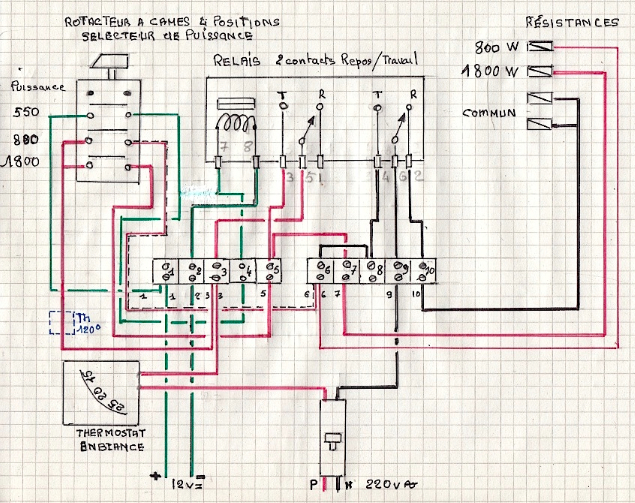 ROTACTEUR A CAMES 4 POSITIONS
SELECTEUR de PUISSANCE
RÉSISTANCES
RELAIS 2 contacts Repos/Travail
800 W
1800 W
COMMUN
Puissance
550
800
1800
T R T R
7 8 3 5 1 4 6 2
1 2 3 4 5 6 7 8 9 10
1 1 2 3 3 5 6 6 7 9 10
Th
120°
15
20
25
THERMOSTAT
ENBIANCE
+ 12V =
P N 220V